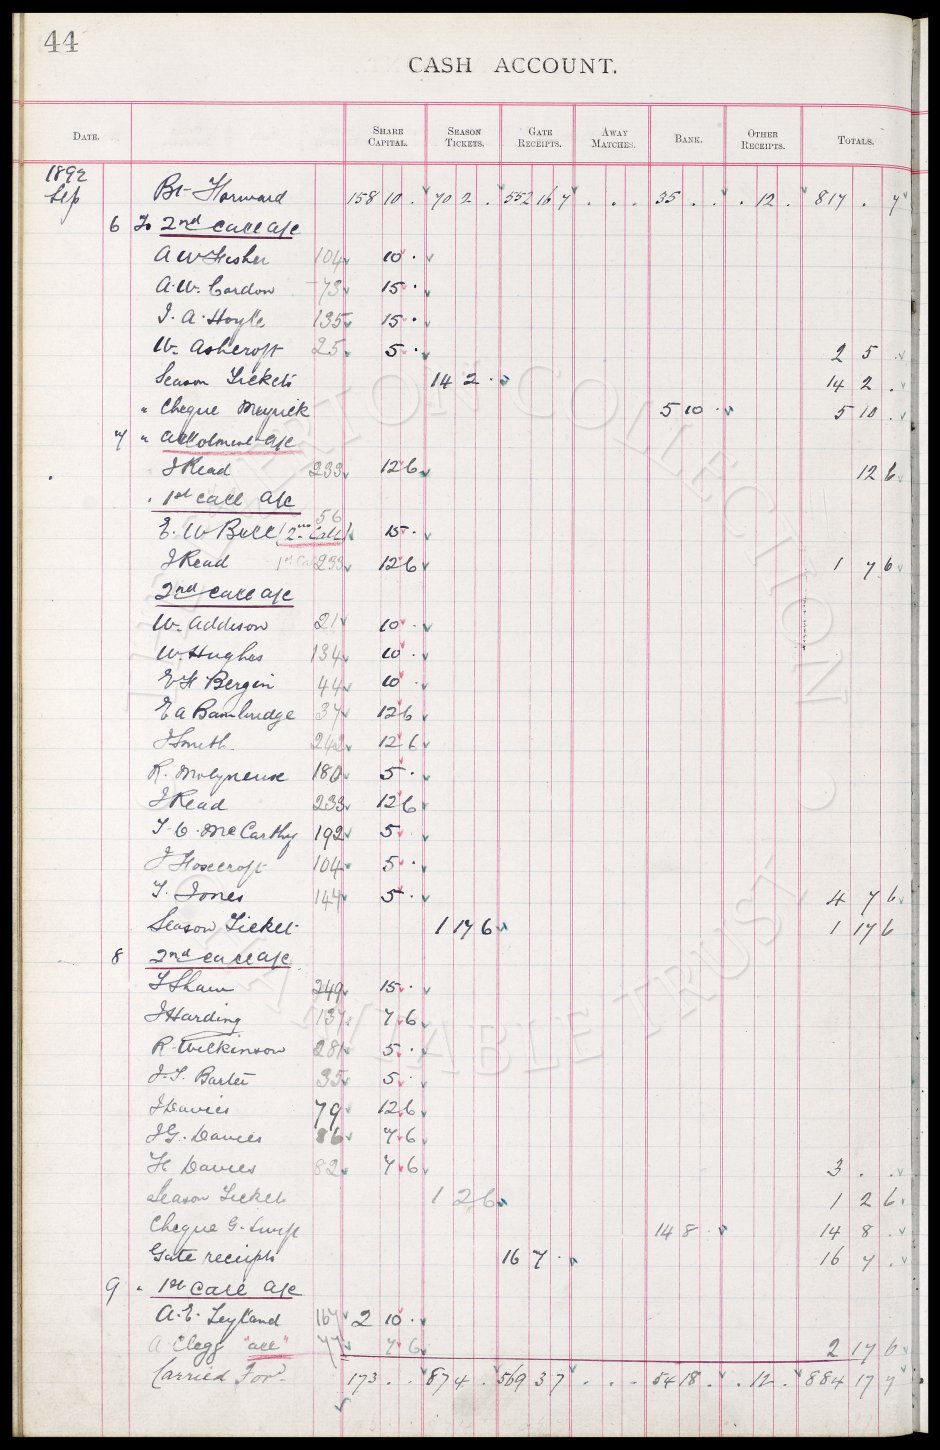 44
CASH ACCOUNT.
DATE. SHARE CAPITAL. SEASON TICKETS. GATE RECEIPTS. AWAY MATCHES. BANK. OTHER RECEIPTS. TOTALS.
1892
Sep Bt Forward 158 10 . 70 2 . 552 16 7 . . . 35 . . . 12 . 817 . 7
6 To 2nd call a/c
A W Fisher 104 10 .
A. W. Cardon 73 15 .
J. A. Hoyle 135 15 .
W. Ashcroft 25 5 . 2 5 .
Season Tickets 14 2 . 14 2 .
" Cheque Meyrick 5 10 . 5 10 .
7 " Allotment a/c
J Read 233 12 6 12 6
" 1st call a/c
E. W Bell (2nd Call) 56 15 .
J Read 1st Call 233 12 6 1 7 6
2nd call a/c
W. Addison 21 10 .
W. Hughes 134 10 .
E H Bergin 44 10 .
E A Bambridge 37 12 6
J Smith 242 12 6
R. Molyneux 180 5 .
J Read 233 12 6
T. C. McCarthy 192 5 .
J Foxcroft 104 5 .
T. Jones 144 5 . 4 7 6
Season Ticket 1 17 6 1 17 6
8 2nd call a/c
T Shaw 249 15 .
J Harding 137 7 6
R. Wilkinson 281 5 .
J. T. Barter 35 5 .
J Davies 79 12 6
J G. Davies 86 7 6
H Davies 82 7 6 3 . .
Season Tickets 1 2 6 1 2 6
Cheque G. 14 8 . 14 8 .
Gate receipts 16 7 . 16 7 .
9 " 1st Call a/c
A. E. Leyland 167 2 10 .
A Clegg "all" 77 7 6 2 17 6
Carried Ford 173 . . 87 4 . 569 3 7 . . . 54 18 . . 12 . 884 17 7
EVERTON COLLECTION
CHARITABLE TRUST